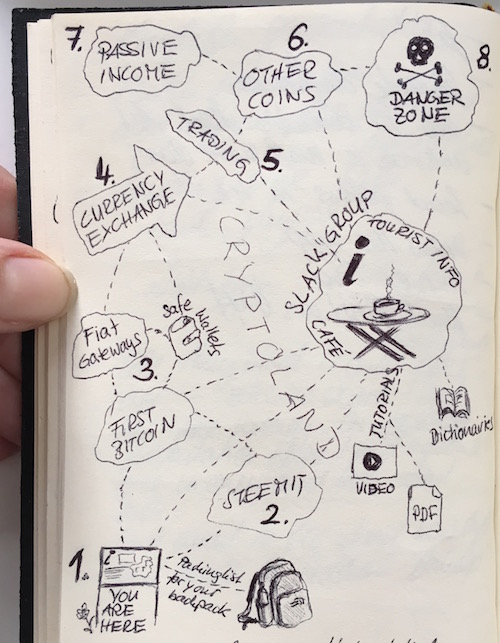 7.
PASSIVE
INCOME
6.
OTHER
COINS
8.
DANGER
ZONE
TRADING
5.
4.
CURRENCY
EXCHANGE
CRYPTOLAND
SLACK GROUP
TOURIST INFO
i
CAFÉ
Fiat
Gateways
safe
wallets
3.
FIRST
BITCOIN
STEEMIT
2.
TUTORIALS
VIDEO
PDF
Dictionaries
1.
i
YOU
ARE
HERE
Packinglist
for your
backpack